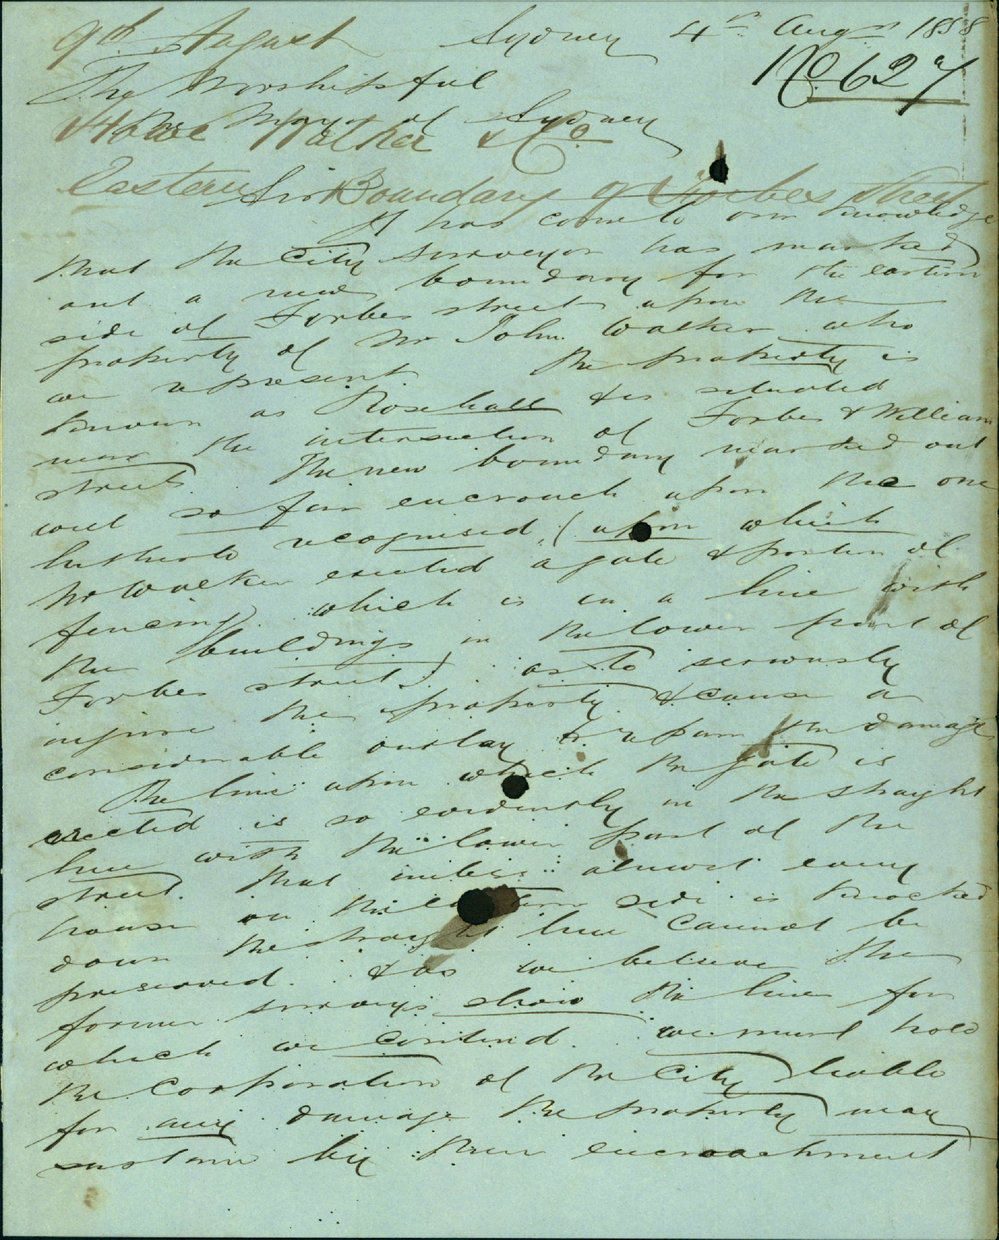 9th August
Sydney 4th Augst 1858
No 627
The Worshipful
The Mayor of Sydney
Walker & Co
Eastern Boundary of Forbes Street
Sir
It has come to our knowledge
that the City Surveyor has marked
out a new boundary for the eastern
side of Forbes street upon the
property of Mr John Walker who
we represent. The property is
known as Rosehall & is situated
near the intersection of Forbes & William
streets. The new boundary marked out
will so far encroach upon the one
hitherto recognised, (upon which
Mr Walker erected a gate & portion of
fencing which is in a line with
the buildings in the lower part of
Forbes street) as to seriously
injure the property & cause a
considerable outlay to repair the damage.
The line upon which the gate is
erected is so evidently in the straight
line with the lower part of the
street that unless almost every
house on the eastern side is knocked
down the straight line cannot be
preserved. & as we believe the
former surveys show the line for
which we contend. we must hold
the Corporation of the City liable
for any damage the property may
sustain by their encroachment